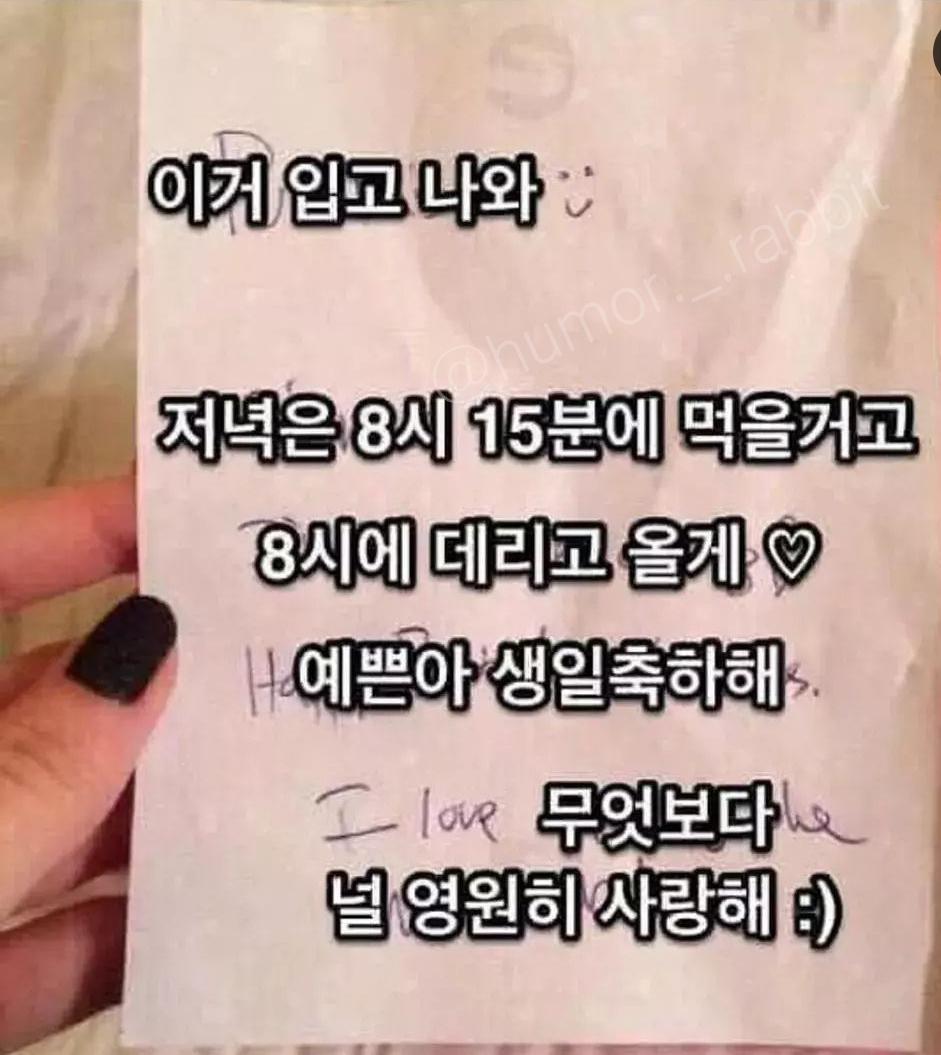 이거 입고 나와
@humor._.rabbit
저녁은 8시 15분에 먹을거고
8시에 데리고 올게 ♡
예쁜아 생일축하해
I love 무엇보다
널 영원히 사랑해 :)